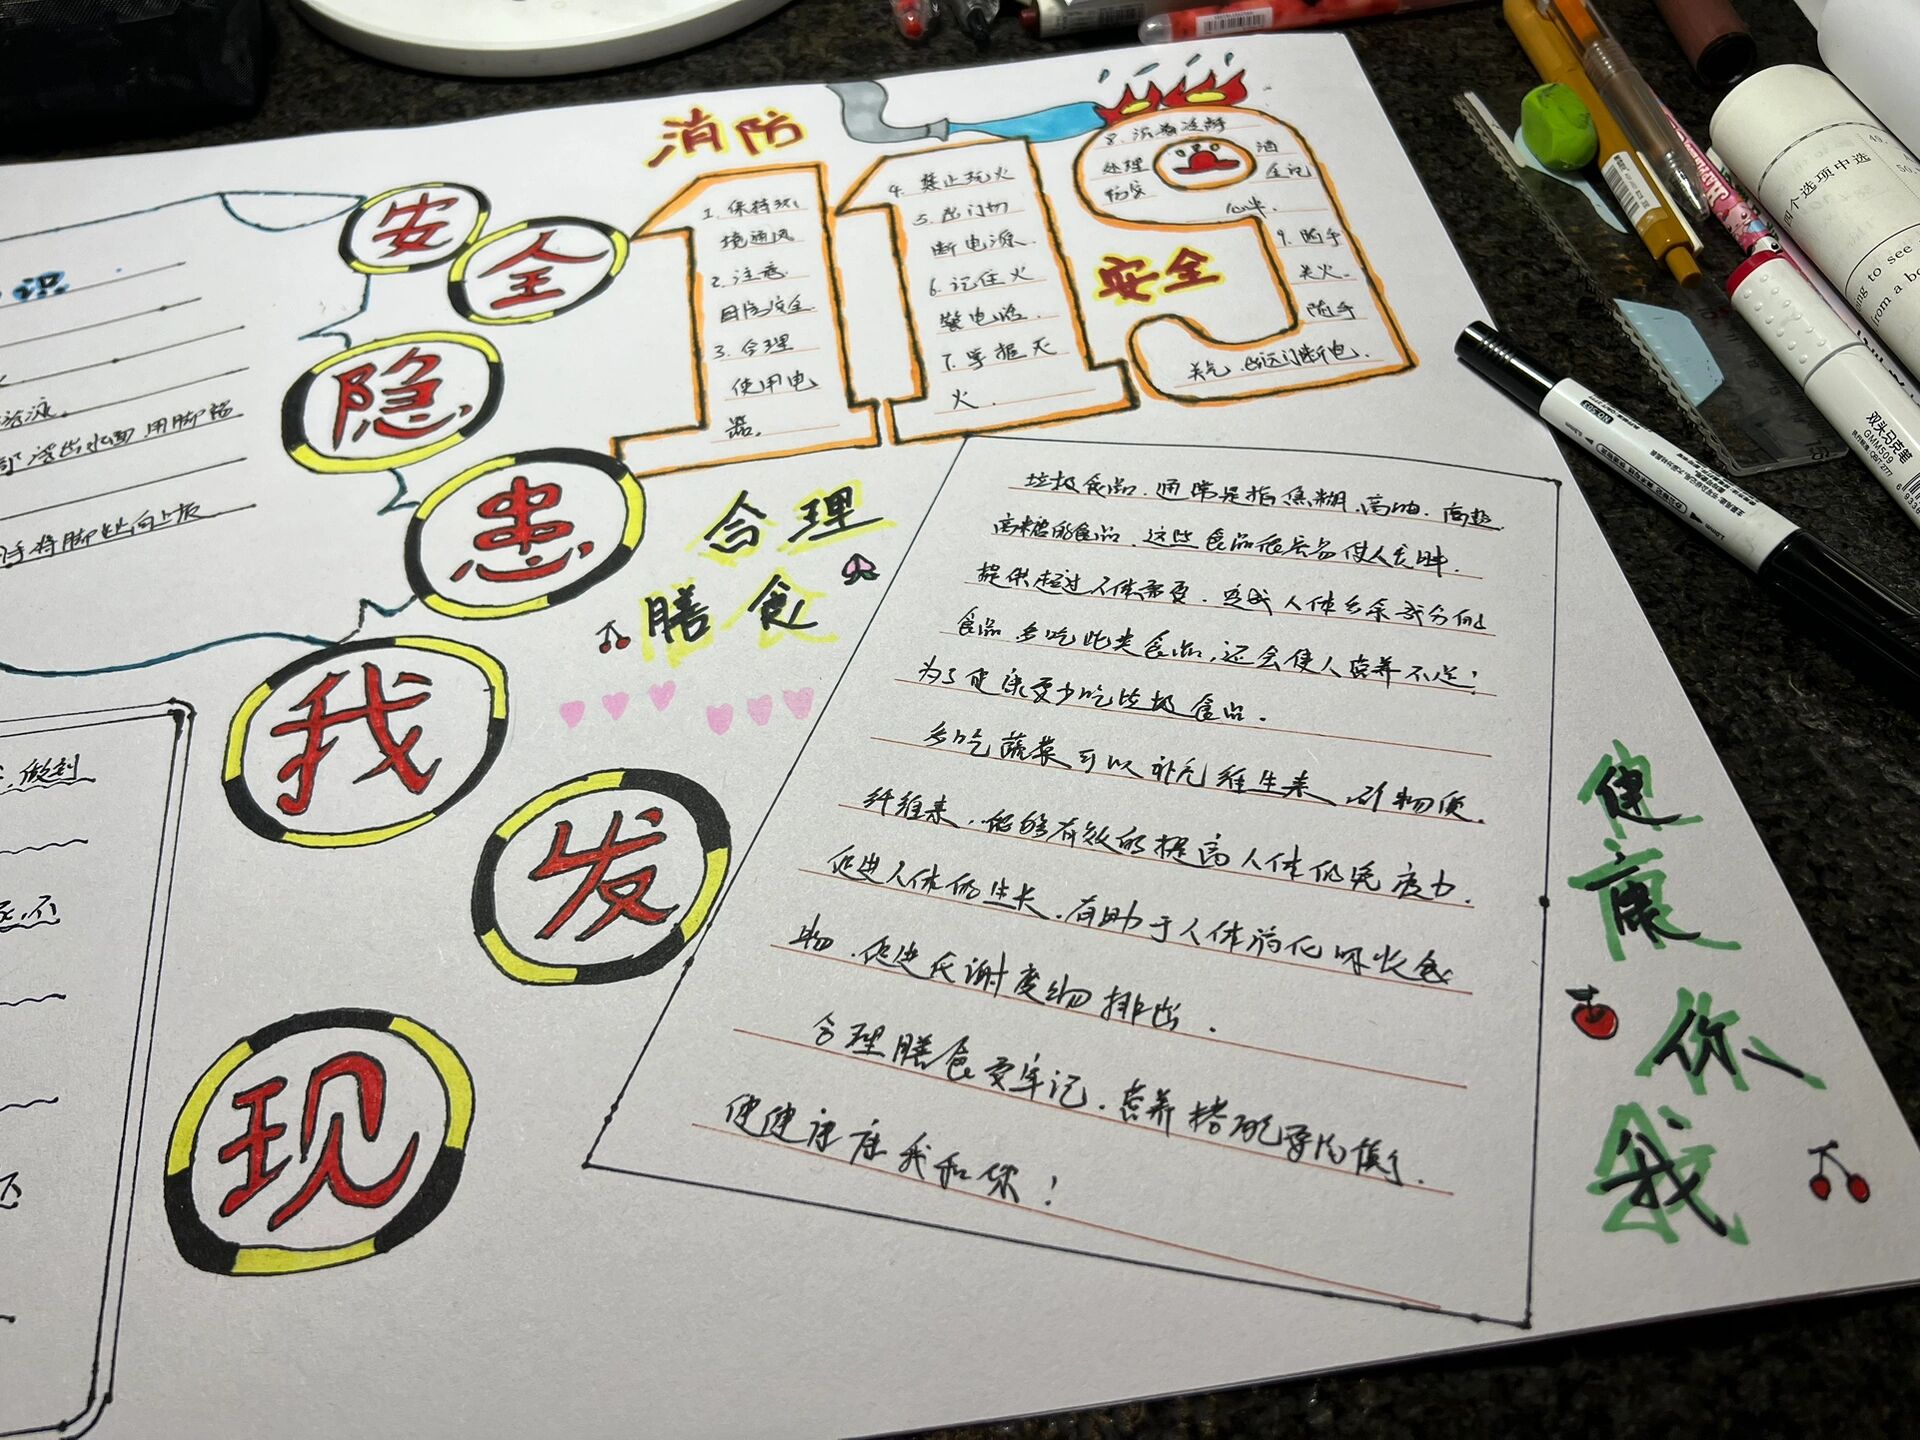 消防
安全
安
全
隐
患
我
发
现
1. 保持环
境通风
2. 注意
用火安全
3. 合理
使用电
器。
4. 禁止玩火
5. 出门切
断电源.
6. 记住火
警电话.
7. 掌握灭
火.
处理
9. 随手
关火.
随手
关气.
门断电.
合理
膳食
垃圾食品.通常是指焦糊.高油.高盐.
高糖的食品.这些食品很容易使人发胖.
提供超过人体需要.变成人体多余成分的
食品 多吃此类食品,还会使人营养不足!
为了健康要少吃垃圾食品.
多吃蔬菜可以补充维生素、矿物质.
纤维素.能够有效的提高人体的免疫力.
促进人体的生长.有助于人体消化吸收食
物.促进代谢废物排出.
合理膳食要牢记.营养搭配要均衡.
健健康康我和你!
健康
你
我
识
游泳.
部 露出水面 用脚踩
手将脚趾向上扳
做到
不
四个选项中选
双头马克笔
GMM509